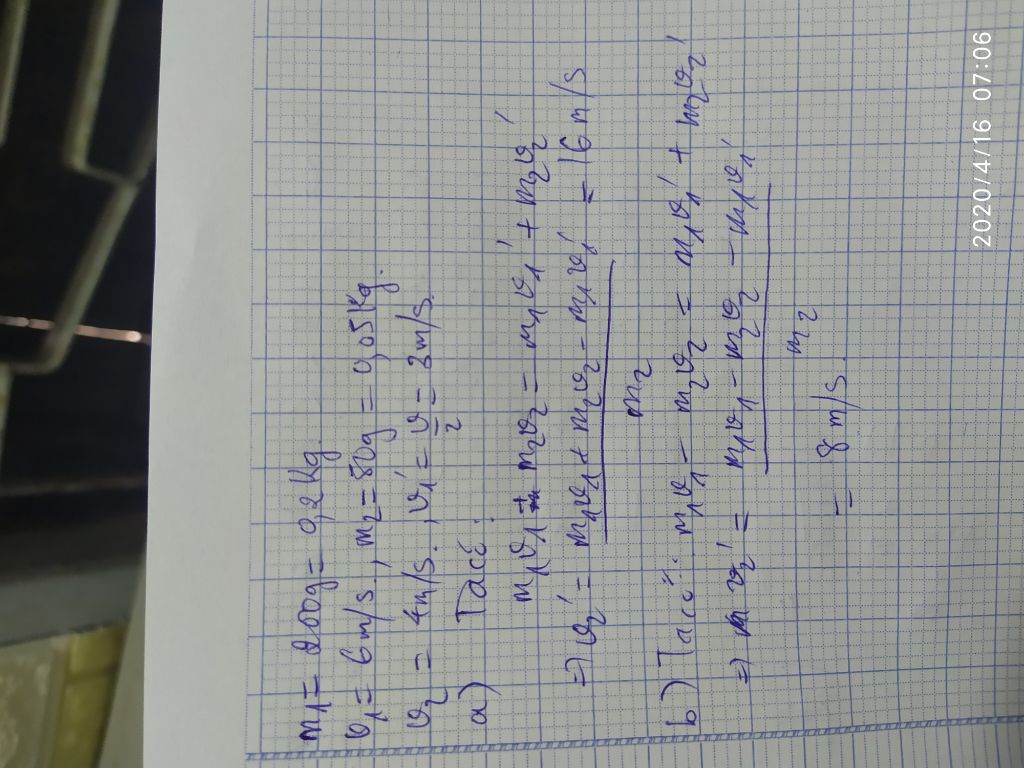 m1 = 200g = 0,2 Kg.
v1 = 6m/s. , m2 = 50g = 0,05Kg.
v2 = 4m/s. , v1' = v/2 = 3m/s.
a) Tacó:
m1v1 + m2v2 = m1v1' + m2v2'
=> v2' = (m1v1 + m2v2 - m1v1') / m2 = 16m/s
b) Tacó: m1v1 - m2v2 = m1v1' + m2v2'
=> v2' = (m1v1 - m2v2 - m1v1') / m2
= 8m/s.
2020/4/16 07:06